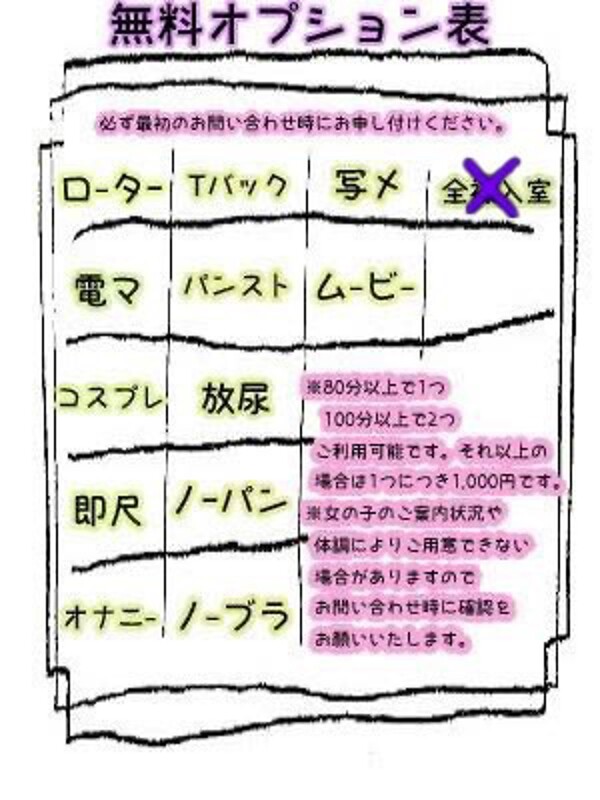 無料オプション表
必ず最初のお問い合わせ時にお申し付けください。
ローター Tバック 写メ 全 入室
電マ パンスト ムービー
コスプレ 放尿
即尺 ノーパン
オナニー ノーブラ
※80分以上で1つ
100分以上で2つ
ご利用可能です。それ以上の
場合は1つにつき1,000円です。
※女の子のご案内状況や
体調によりご用意できない
場合がありますので
お問い合わせ時に確認を
お願いいたします。